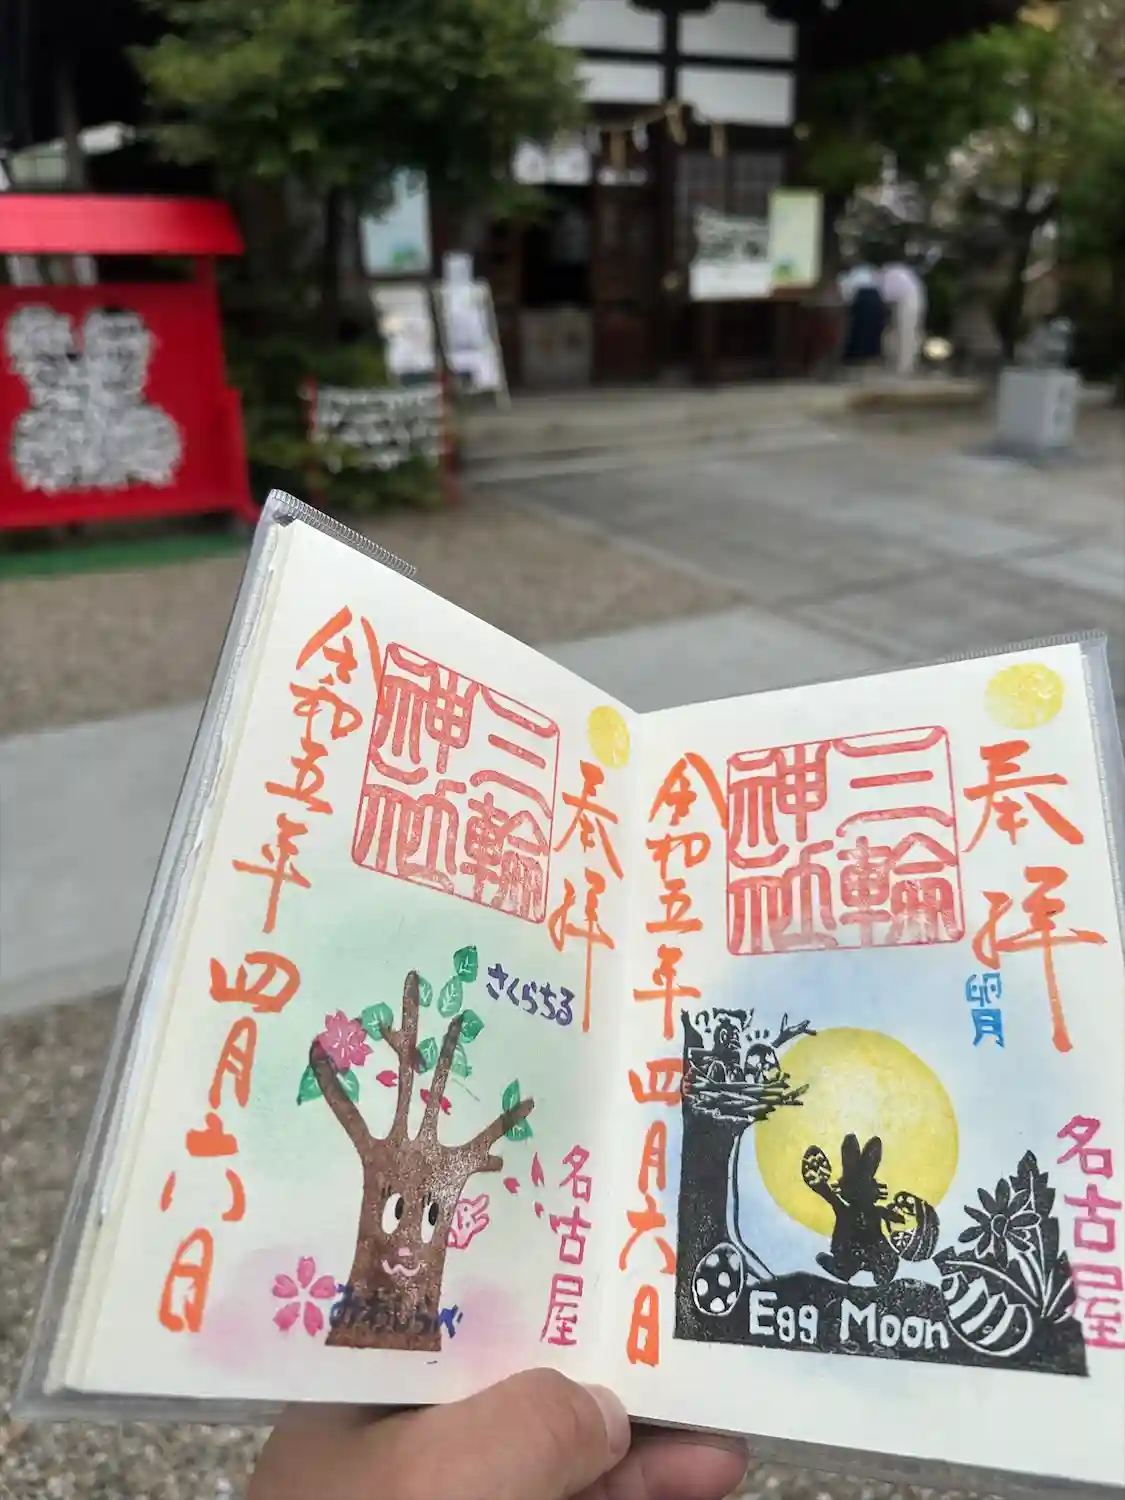 奉拝
三輪神社
令和五年四月六日
卯月
名古屋
Egg Moon
奉拝
三輪神社
令和五年四月六日
さくらちる
名古屋